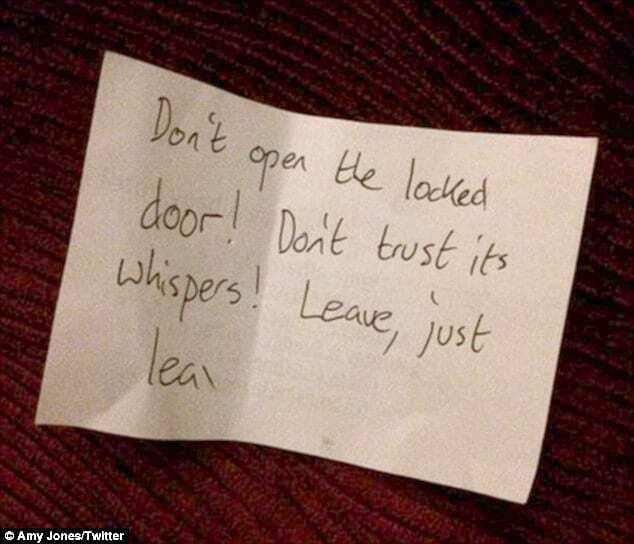 Don't open the locked
door! Don't trust its
whispers! Leave, just
lea
© Amy Jones/Twitter